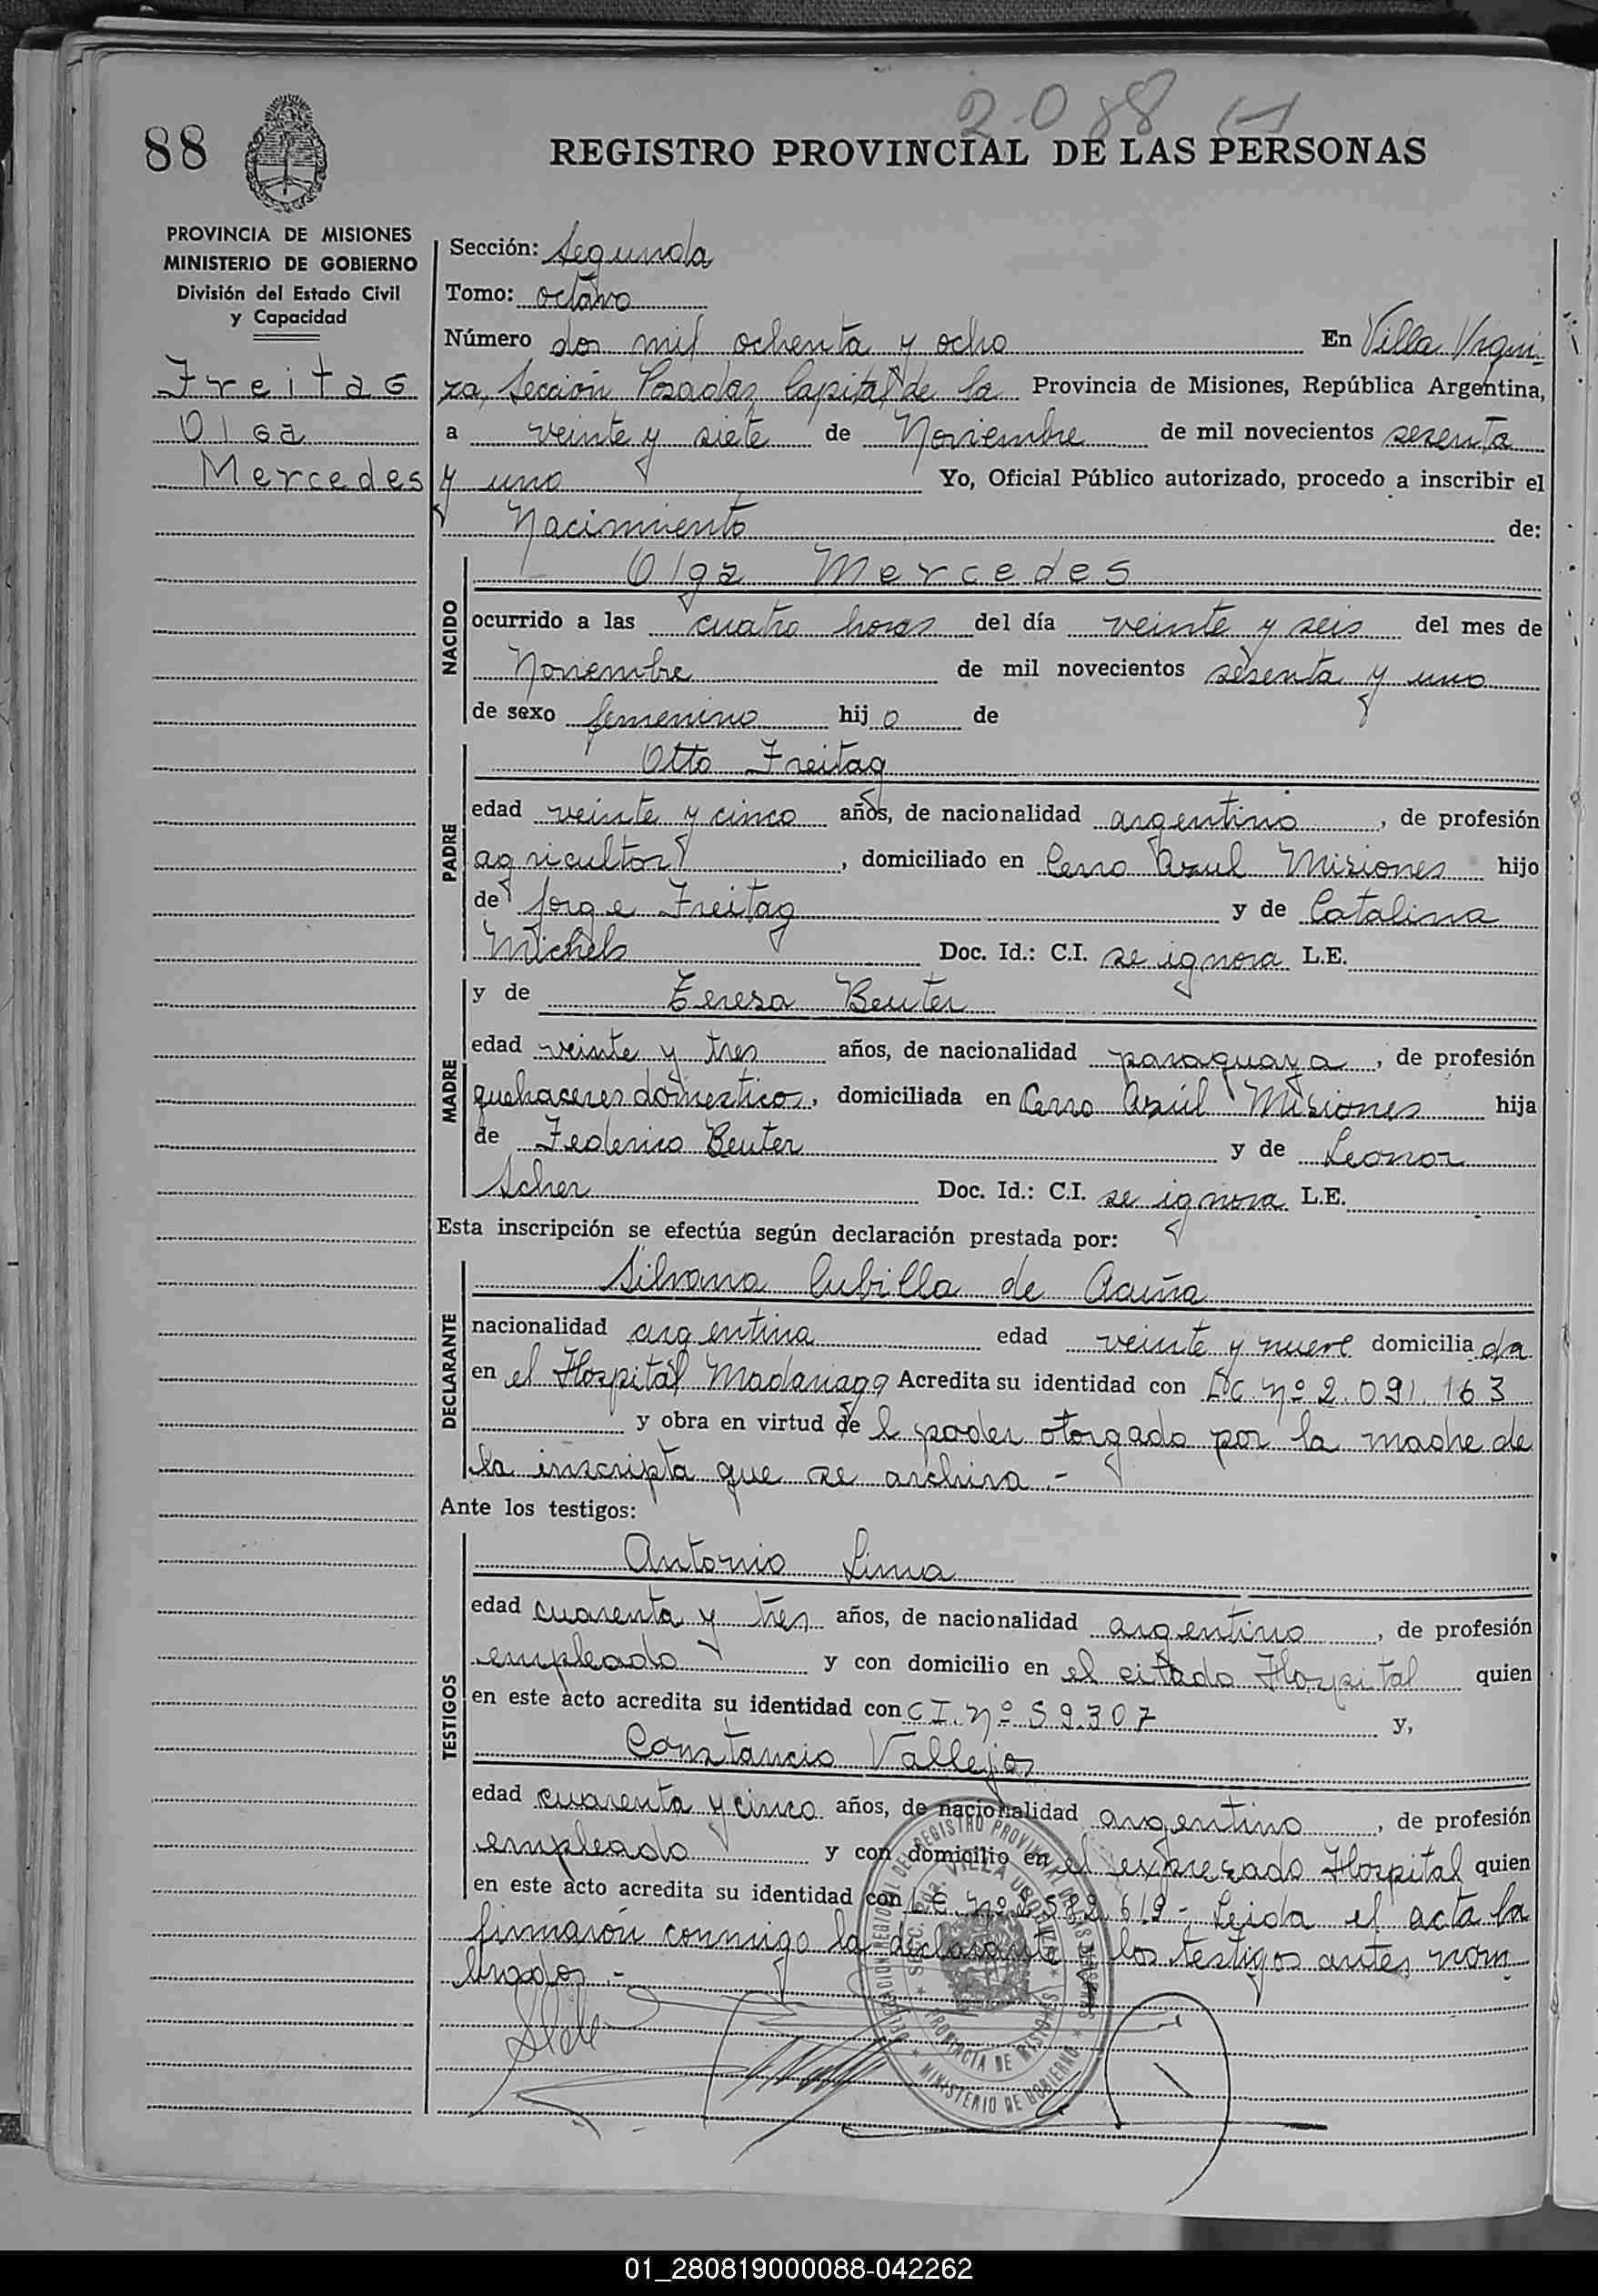 2088
88
REGISTRO PROVINCIAL DE LAS PERSONAS
PROVINCIA DE MISIONES
MINISTERIO DE GOBIERNO
División del Estado Civil
y Capacidad
Freitag
Olga
Mercedes
Sección: Segunda
Tomo: octavo
Número dos mil ochenta y ocho En Villa Urqui-
za, Sección Posadas Capital de la Provincia de Misiones, República Argentina,
a veinte y siete de Noviembre de mil novecientos sesenta
y uno Yo, Oficial Público autorizado, procedo a inscribir el
Nacimiento de:
NACIDO
Olga Mercedes
ocurrido a las cuatro horas del día veinte y seis del mes de
Noviembre de mil novecientos sesenta y uno
de sexo femenino hijo de
PADRE
Otto Freitag
edad veinte y cinco años, de nacionalidad argentino, de profesión
agricultor, domiciliado en Cerro Azul Misiones hijo
de Jorge Freitag y de Catalina
Michels Doc. Id.: C.I. se ignora L.E.
MADRE
y de Teresa Beuter
edad veinte y tres años, de nacionalidad paraguaya, de profesión
quehaceres domesticos, domiciliada en Cerro Azúl Misiones hija
de Federico Beuter y de Leonor
Scher Doc. Id.: C.I. se ignora L.E.
Esta inscripción se efectúa según declaración prestada por:
DECLARANTE
Silvana Cubilla de Acuña
nacionalidad argentina edad veinte y nueve domiciliada
en el Hospital Madariaga Acredita su identidad con LC. nº 2.091.163
y obra en virtud del poder otorgado por la madre de
la inscripta que se archiva.-
Ante los testigos:
TESTIGOS
Antonio Lima
edad cuarenta y tres años, de nacionalidad argentino, de profesión
empleado y con domicilio en el citado Hospital quien
en este acto acredita su identidad con C I. nº 59.307 y,
Constancio Vallejos
edad cuarenta y cinco años, de nacionalidad argentino, de profesión
empleado y con domicilio en el expresado Hospital quien
en este acto acredita su identidad con L.E. nº 2.582.619 - Leida el acta la
firmarón conmigo la declarante y los testigos antes nom
brados.-
DELEGACION REGIONAL DEL REGISTRO PROVINCIAL DE LAS PERSONAS
SEC. 2da. VILLA URQUIZA
PROVINCIA DE MISIONES
MINISTERIO DE GOBIERNO
01_280819000088-042262